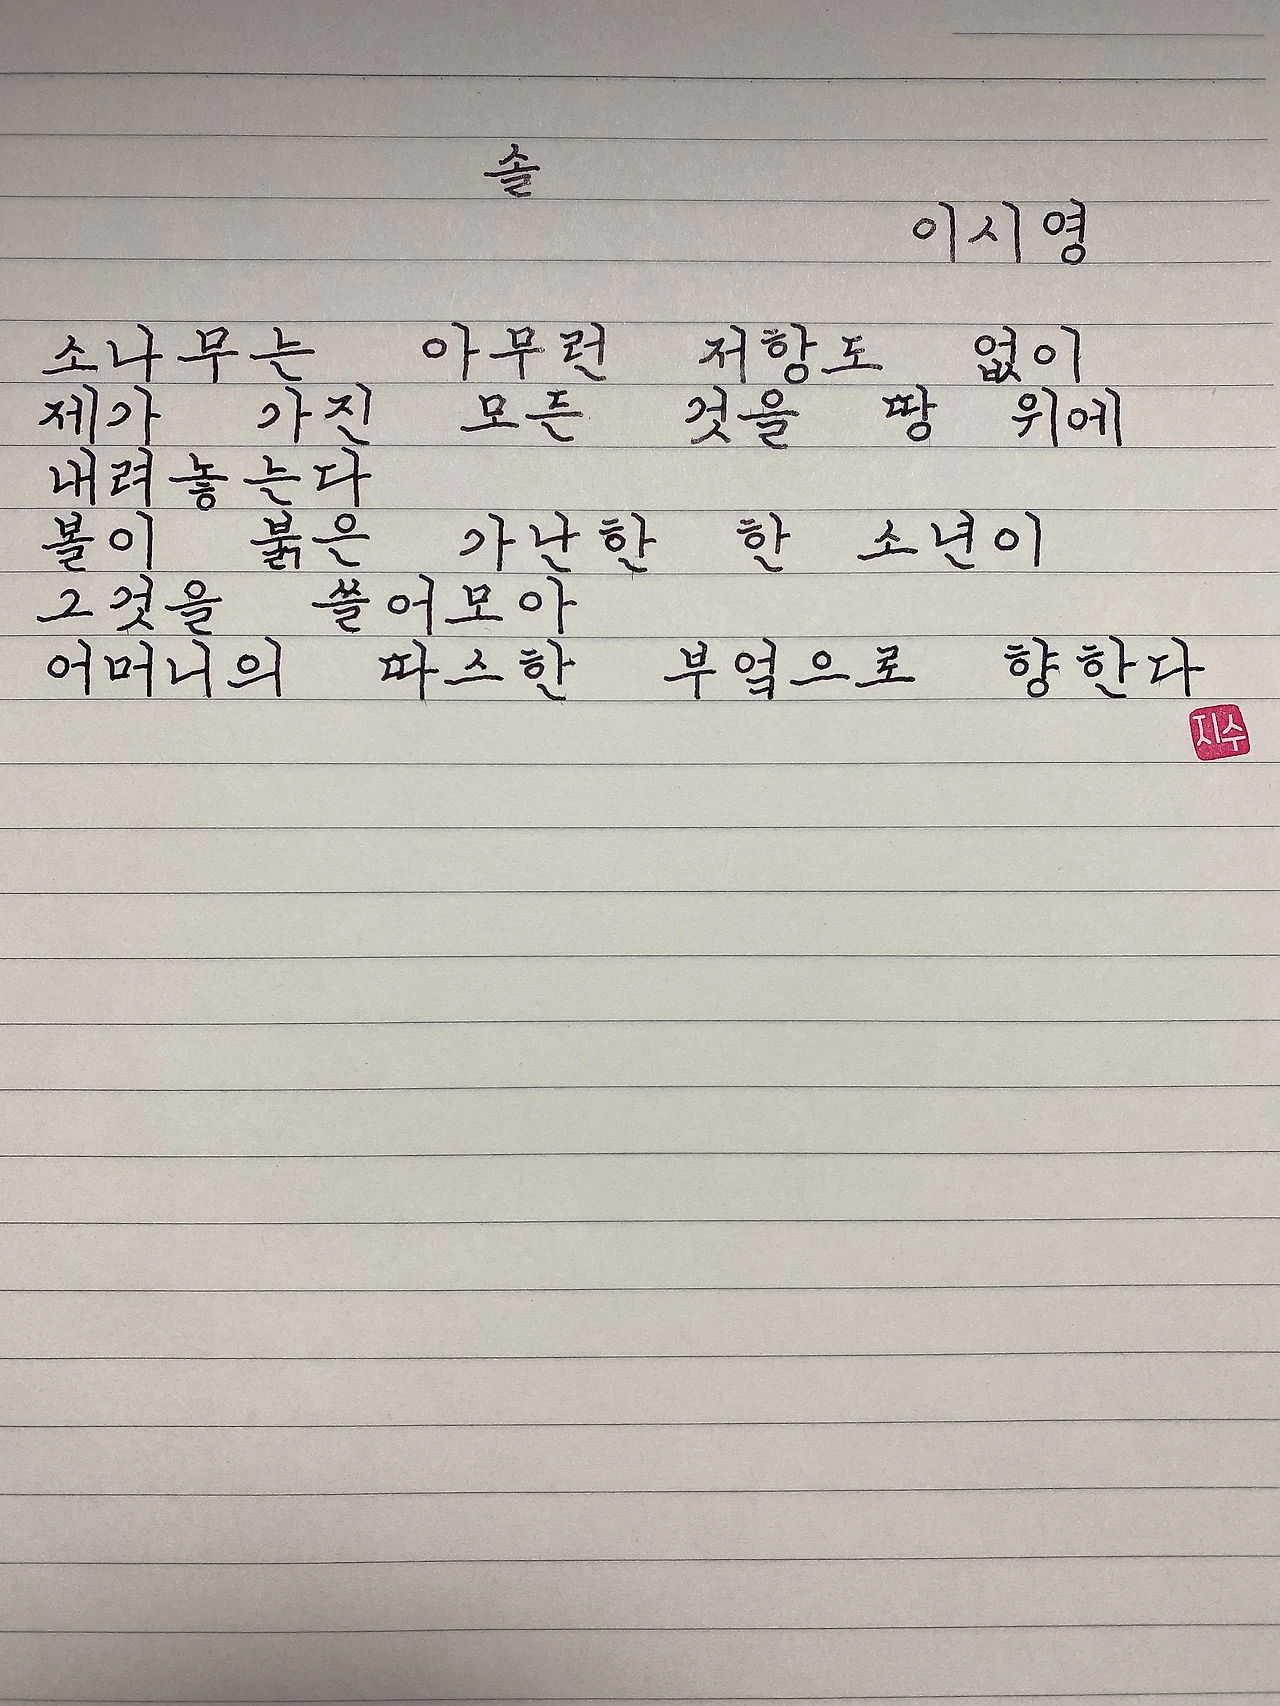 솔
이시영
소나무는 아무런 저항도 없이
제가 가진 모든 것을 땅 위에
내려놓는다
볼이 붉은 가난한 한 소년이
그것을 쓸어모아
어머니의 따스한 부엌으로 향한다
지수